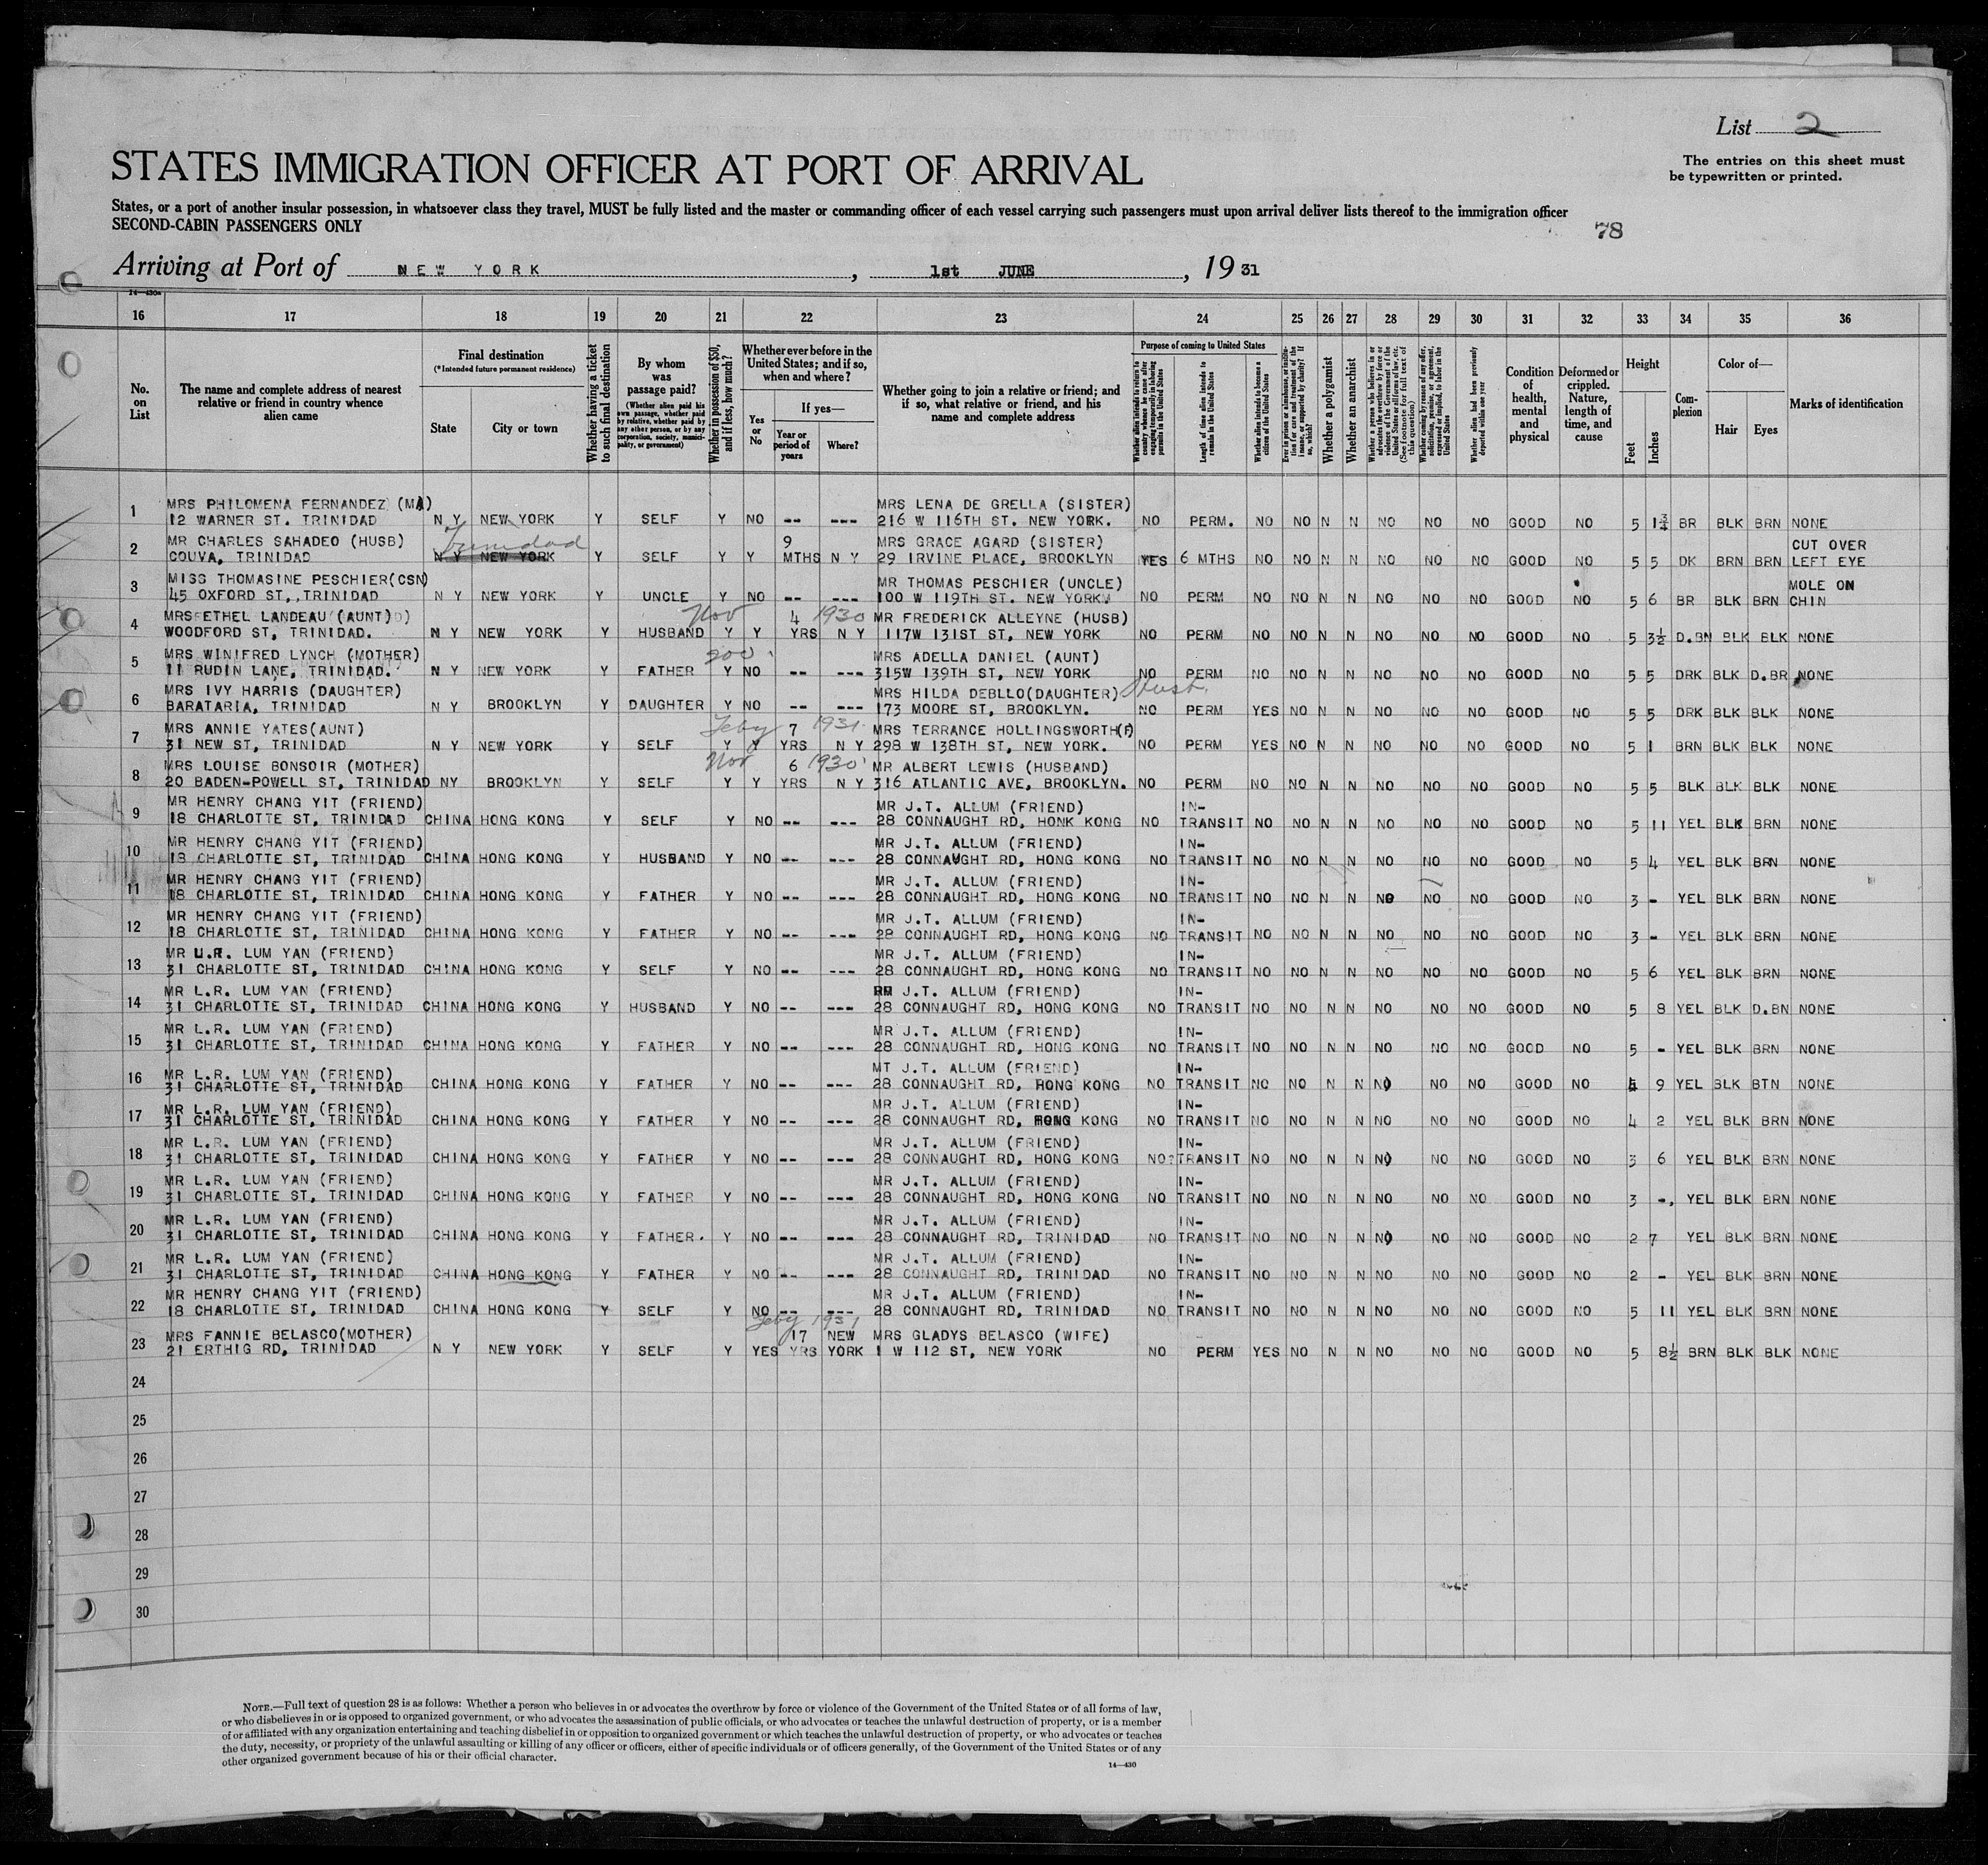 List 2
STATES IMMIGRATION OFFICER AT PORT OF ARRIVAL
The entries on this sheet must
be typewritten or printed.
States, or a port of another insular possession, in whatsoever class they travel, MUST be fully listed and the master or commanding officer of each vessel carrying such passengers must upon arrival deliver lists thereof to the immigration officer
SECOND-CABIN PASSENGERS ONLY
78
Arriving at Port of NEW YORK, 1st JUNE, 19 31
14-430a
16 17 18 19 20 21 22 23 24 25 26 27 28 29 30 31 32 33 34 35 36
No. on List
The name and complete address of nearest relative or friend in country whence alien came
Final destination
(*Intended future permanent residence)
State
City or town
Whether having a ticket to such final destination
By whom was passage paid?
(Whether alien paid his own passage, whether paid by relative, whether paid by any other person, or by any corporation, society, municipality, or government)
Whether in possession of $50, and if less, how much?
Whether ever before in the United States; and if so, when and where?
Yes or No
If yes—
Year or period of years
Where?
Whether going to join a relative or friend; and if so, what relative or friend, and his name and complete address
Purpose of coming to United States
Whether alien intends to return to country whence he came after engaging temporarily in laboring pursuits in the United States
Length of time alien intends to remain in the United States
Whether alien intends to become a citizen of the United States
Whether a polygamist
Whether an anarchist
Whether alien had been previously deported within one year
Condition of health, mental and physical
Deformed or crippled. Nature, length of time, and cause
Height
Feet
Inches
Complexion
Color of—
Hair
Eyes
Marks of identification
1 MRS PHILOMENA FERNANDEZ (MA) MRS LENA DE GRELLA (SISTER)
12 WARNER ST. TRINIDAD N Y NEW YORK Y SELF Y NO -- --- 216 W 116TH ST. NEW YORK. NO PERM. NO NO N N NO NO NO GOOD NO 5 1¾ BR BLK BRN NONE
2 MR CHARLES SAHADEO (HUSB) Trinidad 9 MRS GRACE AGARD (SISTER) CUT OVER
COUVA, TRINIDAD N Y NEW YORK Y SELF Y Y MTHS N Y 29 IRVINE PLACE, BROOKLYN YES 6 MTHS NO NO N N NO NO NO GOOD NO 5 5 DK BRN BRN LEFT EYE
3 MISS THOMASINE PESCHIER(CSN) MR THOMAS PESCHIER (UNCLE) MOLE ON
45 OXFORD ST,,TRINIDAD N Y NEW YORK Y UNCLE Y NO -- --- 100 W 119TH ST. NEW YORK NO PERM NO NO N N NO NO NO GOOD NO 5 6 BR BLK BRN CHIN
4 MRS ETHEL LANDEAU (AUNT) Nov 4 1930 MR FREDERICK ALLEYNE (HUSB)
WOODFORD ST, TRINIDAD. N Y NEW YORK Y HUSBAND Y Y YRS N Y 117W 131ST ST, NEW YORK NO PERM NO NO N N NO NO NO GOOD NO 5 3½ D.BN BLK BLK NONE
5 MRS WINIFRED LYNCH (MOTHER) 200. MRS ADELLA DANIEL (AUNT)
11 RUDIN LANE, TRINIDAD. N Y NEW YORK Y FATHER Y NO -- --- 315W 139TH ST, NEW YORK NO PERM NO NO N N NO NO NO GOOD NO 5 5 DRK BLK D.BR NONE
6 MRS IVY HARRIS (DAUGHTER) MRS HILDA DEBLLO(DAUGHTER)
BARATARIA, TRINIDAD N Y BROOKLYN Y DAUGHTER Y NO -- -- 173 MOORE ST, BROOKLYN. NO PERM YES NO N N NO NO NO GOOD NO 5 5 DRK BLK BLK NONE
7 MRS ANNIE YATES(AUNT) Feby 7 1931. MRS TERRANCE HOLLINGSWORTH(F)
31 NEW ST, TRINIDAD N Y NEW YORK Y SELF Y Y YRS N Y 298 W 138TH ST, NEW YORK. NO PERM YES NO N N NO NO NO GOOD NO 5 1 BRN BLK BLK NONE
8 MRS LOUISE BONSOIR (MOTHER) Nov 6 1930 MR ALBERT LEWIS (HUSBAND)
20 BADEN-POWELL ST, TRINIDAD NY BROOKLYN Y SELF Y Y YRS N Y 316 ATLANTIC AVE, BROOKLYN. NO PERM NO NO N N NO NO NO GOOD NO 5 5 BLK BLK BLK NONE
9 MR HENRY CHANG YIT (FRIEND) MR J.T. ALLUM (FRIEND) IN-
18 CHARLOTTE ST, TRINIDAD CHINA HONG KONG Y SELF Y NO -- --- 28 CONNAUGHT RD, HONK KONG NO TRANSIT NO NO N N NO NO NO GOOD NO 5 11 YEL BLK BRN NONE
10 MR HENRY CHANG YIT (FRIEND) MR J.T. ALLUM (FRIEND) IN-
18 CHARLOTTE ST, TRINIDAD CHINA HONG KONG Y HUSBAND Y NO -- --- 28 CONNAUGHT RD, HONG KONG NO TRANSIT NO NO N N NO NO NO GOOD NO 5 4 YEL BLK BRN NONE
11 MR HENRY CHANG YIT (FRIEND) MR J.T. ALLUM (FRIEND) IN-
18 CHARLOTTE ST, TRINIDAD CHINA HONG KONG Y FATHER Y NO -- --- 28 CONNAUGHT RD, HONG KONG NO TRANSIT NO NO N N NO NO NO GOOD NO 3 - YEL BLK BRN NONE
12 MR HENRY CHANG YIT (FRIEND) MR J.T. ALLUM (FRIEND) IN-
18 CHARLOTTE ST, TRINIDAD CHINA HONG KONG Y FATHER Y NO -- --- 28 CONNAUGHT RD, HONG KONG NO TRANSIT NO NO N N NO NO NO GOOD NO 3 - YEL BLK BRN NONE
13 MR L.R. LUM YAN (FRIEND) MR J.T. ALLUM (FRIEND) IN-
31 CHARLOTTE ST, TRINIDAD CHINA HONG KONG Y SELF Y NO -- --- 28 CONNAUGHT RD, HONG KONG NO TRANSIT NO NO N N NO NO NO GOOD NO 5 6 YEL BLK BRN NONE
14 MR L.R. LUM YAN (FRIEND) J.T. ALLUM (FRIEND) IN-
31 CHARLOTTE ST, TRINIDAD CHINA HONG KONG Y HUSBAND Y NO -- --- 28 CONNAUGHT RD, HONG KONG NO TRANSIT NO NO N N NO NO NO GOOD NO 5 8 YEL BLK D.BN NONE
15 MR L.R. LUM YAN (FRIEND) MR J.T. ALLUM (FRIEND) IN-
31 CHARLOTTE ST, TRINIDAD CHINA HONG KONG Y FATHER Y NO -- --- 28 CONNAUGHT RD, HONG KONG NO TRANSIT NO NO N N NO NO NO GOOD NO 5 - YEL BLK BRN NONE
16 MR L.R. LUM YAN (FRIEND) MT J.T. ALLUM (FRIEND) IN-
31 CHARLOTTE ST, TRINIDAD CHINA HONG KONG Y FATHER Y NO -- --- 28 CONNAUGHT RD, HONG KONG NO TRANSIT NO NO N N NO NO NO GOOD NO 4 9 YEL BLK BTN NONE
17 MR L.R. LUM YAN (FRIEND) MR J.T. ALLUM (FRIEND) IN-
31 CHARLOTTE ST, TRINIDAD CHINA HONG KONG Y FATHER Y NO -- --- 28 CONNAUGHT RD, HONG KONG NO TRANSIT NO NO N N NO NO NO GOOD NO 4 2 YEL BLK BRN NONE
18 MR L.R. LUM YAN (FRIEND) MR J.T. ALLUM (FRIEND) IN-
31 CHARLOTTE ST, TRINIDAD CHINA HONG KONG Y FATHER Y NO -- --- 28 CONNAUGHT RD, HONG KONG NO? TRANSIT NO NO N N NO NO NO GOOD NO 3 6 YEL BLK BRN NONE
19 MR L.R. LUM YAN (FRIEND) MR J.T. ALLUM (FRIEND) IN-
31 CHARLOTTE ST, TRINIDAD CHINA HONG KONG Y FATHER Y NO -- --- 28 CONNAUGHT RD, HONG KONG NO TRANSIT NO NO N N NO NO NO GOOD NO 3 -. YEL BLK BRN NONE
20 MR L.R. LUM YAN (FRIEND) MR J.T. ALLUM (FRIEND) IN-
31 CHARLOTTE ST, TRINIDAD CHINA HONG KONG Y FATHER. Y NO -- --- 28 CONNAUGHT RD, TRINIDAD NO TRANSIT NO NO N N NO NO NO GOOD NO 2 7 YEL BLK BRN NONE
21 MR L.R. LUM YAN (FRIEND) MR J.T. ALLUM (FRIEND) IN-
31 CHARLOTTE ST, TRINIDAD CHINA HONG KONG Y FATHER Y NO -- --- 28 CONNAUGHT RD, TRINIDAD NO TRANSIT NO NO N N NO NO NO GOOD NO 2 - YEL BLK BRN NONE
22 MR HENRY CHANG YIT (FRIEND) MR J.T. ALLUM (FRIEND) IN-
18 CHARLOTTE ST, TRINIDAD CHINA HONG KONG Y SELF Y NO -- --- 28 CONNAUGHT RD, TRINIDAD NO TRANSIT NO NO N N NO NO NO GOOD NO 5 11 YEL BLK BRN NONE
Feby 1931
23 MRS FANNIE BELASCO(MOTHER) 17 NEW MRS GLADYS BELASCO (WIFE)
21 ERTHIG RD, TRINIDAD N Y NEW YORK Y SELF Y YES YRS YORK 1 W 112 ST, NEW YORK NO PERM YES NO N N NO NO NO GOOD NO 5 8½ BRN BLK BLK NONE
24
25
26
27
28
29
30
NOTE.—Full text of question 28 is as follows: Whether a person who believes in or advocates the overthrow by force or violence of the Government of the United States or of all forms of law,
or who disbelieves in or is opposed to organized government, or who advocates the assassination of public officials, or who advocates or teaches the unlawful destruction of property, or is a member
of or affiliated with any organization entertaining and teaching disbelief in or opposition to organized government or which teaches the unlawful destruction of property, or who advocates or teaches
the duty, necessity, or propriety of the unlawful assaulting or killing of any officer or officers, either of specific individuals or of officers generally, of the Government of the United States or of any
other organized government because of his or their official character.
14—430